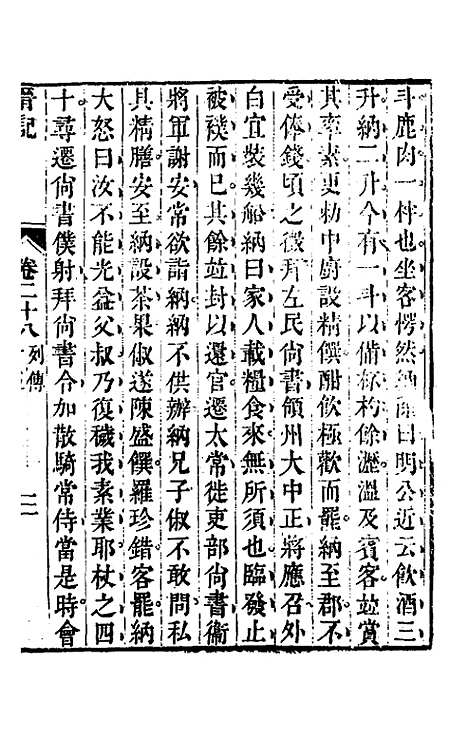 斗鹿肉一柈也坐客愕然納醒曰明公近云飮酒三
升納二升今有一斗以備杯杓餘瀝溫及賓客竝賞
其率素更勅中厨設精饌酣飮極歡而罷納至郡不
受俸錢頃之徵拜左民尙書領州大中正將應召外
白宜裝幾船納曰家人載糧食來無所須也臨發止
被襆而已其餘竝封以還官遷太常徙吏部尙書衞
將軍謝安常欲詣納納不供辦納兄子俶不敢問私
具精膳安至納設茶果俶遂陳盛饌羅珍錯客罷納
大怒曰汝不能光益父叔乃復穢我素業耶杖之四
十尋遷尙書僕射拜尙書令加散騎常侍當是時會
晋記
卷二十八 列傳
二